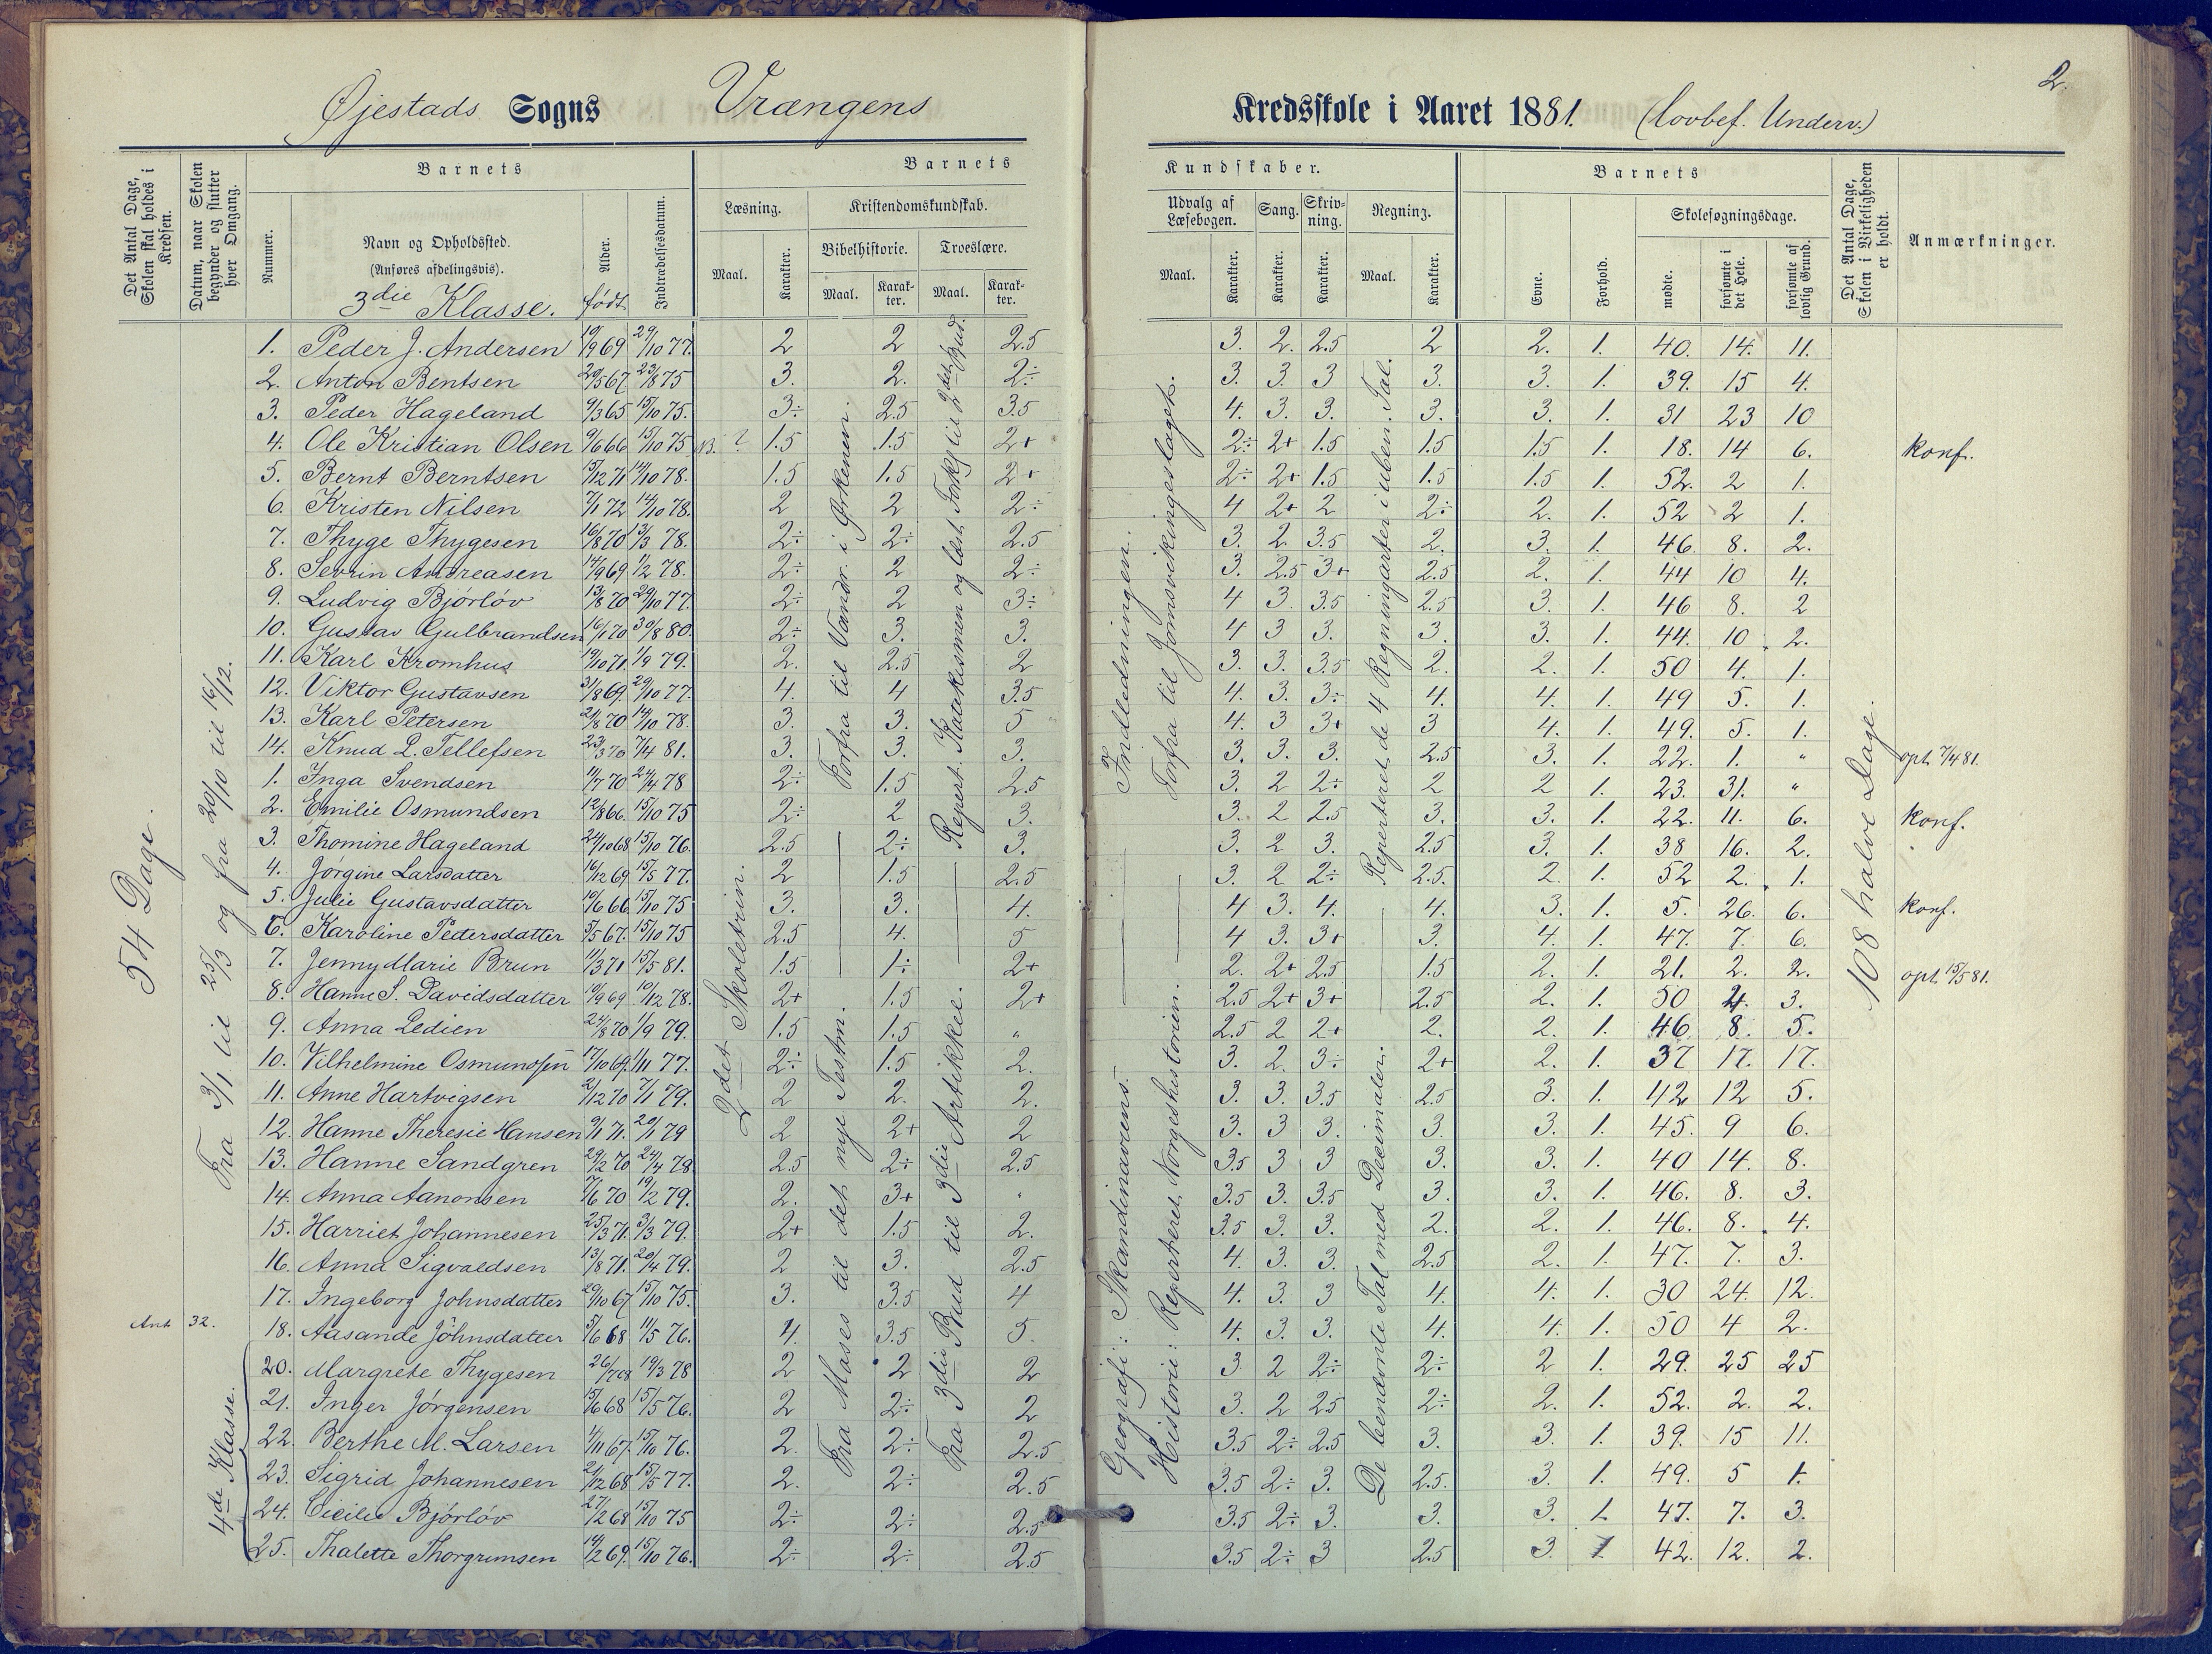 2.
Øjestads Sogns Vrængens Kredsskole i Aaret 1881. (lovbef. Underv.)
Det Antal Dage, Skolen skal holdes i Kredsen.
Datum, naar Skolen begynder og slutter hver Omgang.
Barnets
Nummer.
Navn og Opholdssted.
(Anføres afdelingsvis).
3die Klasse.
Alder.
født
Indtrædelsesdatum.
Barnets Kundskaber.
Læsning.
Maal.
Karakter.
Kristendomskundskab.
Bibelhistorie.
Maal.
Karakter.
Troeslære.
Maal.
Karakter.
Udvalg af Læsebogen.
Maal.
Karakter.
Sang.
Karakter.
Skrivning.
Karakter.
Regning.
Maal.
Karakter.
Barnets
Evne.
Forhold.
Skolesøgningsdage.
mødte.
forsømte i det Hele.
forsømte af lovlig Grund.
Det Antal Dage, Skolen i Virkeligheden er holdt.
Anmærkninger.
54 Dage.
Fra 3/1 til 25/3 og fra 20/10 til 16/12.
2det Skoletrin.
Forfra til Vandr. i Ørkenen.
Fra Moses til det nye Testm.
Repert. Katakismen og læst Forkl til 2det Bud.
Fra 3die Bud til 3die Artikkel.
Indledningen.
Forfra til Jomsvikingeslaget.
Geografi: Skandinaviens.
Historie: Reperteret Norgeshistorien.
Reperteret de 4 Regningarter i uben. Tal.
De benævnte Tal med Decimaler.
108 halve Dage.
1. Peder J. Andersen 19/9 69 29/10 77. 2 2 2.5 3. 2. 2.5 2 2. 1. 40. 14. 11.
2. Anton Bentsen 29/5 67 23/8 75 3. 2. 2÷ 3. 3. 3 3. 3. 1. 39. 15 4.
3. Peder Hageland 9/3 65 15/10 75. 3÷ 2.5 3.5 4. 3. 3. 3. 3. 1. 31 23 10
4. Ole Kristian Olsen 9/6 66 15/10 75 NB. ? 1.5 1.5 2+ 2÷ 2+ 1.5 1.5 1.5 1. 18. 14 6. konf.
5. Bernt Berntsen 15/12 71 14/10 78. 1.5 1.5 2+ 2÷ 2+ 1.5 1.5 1.5 1. 52. 2 1.
6. Kristen Nilsen 7/1 72 14/10 78. 2 2 2÷ 4 2+ 2 2÷ 2. 1. 52 2 1.
7. Thyge Thygesen 16/8 70 13/3 78. 2÷ 2÷ 2.5 3. 2. 3.5 2. 3. 1. 46. 8. 2.
8. Sevrin Andreasen 14/9 69 1/2 78. 2÷ 2 2÷ 3. 2.5 3+ 2.5 2. 1. 44 10 4.
9. Ludvig Bjórlóv 13/8 70 29/10 77. 2÷ 2 3÷ 4 3. 3.5 2.5 3. 1. 46 8. 2
10. Gustav Gulbrandsen 16/1 70 30/8 80. 2÷ 3. 3. 4 3 3. 3. 3. 1. 44. 10 2.
11. Karl Kromhus 19/10 71. 1/9 79. 2. 2.5 2 3. 3. 3.5 2. 2. 1. 50 4. 1.
12. Viktor Gustavsen 31/8 69. 29/10 77. 4. 4 3.5 4. 3. 3÷ 4. 4. 1. 49 5. 1.
13. Karl Petersen 21/8 70 14/10 78. 3. 3. 5 4. 3 3+ 3 4. 1. 49. 5. 1.
14. Knud L. Tellefsen 23/3 70 7/4 81. 3. 3. 3. 3. 3. 3. 2.5 3. 1. 22. 1. " opt. 7/4 81.
1. Inga Svendsen 11/7 70 24/4 78 2÷ 1.5 2.5 3. 2 2÷ 2 2 1. 23. 31. "
2. Emilie Osmundsen 12/8 66. 15/10 75 2÷ 2 3. 3. 2 2.5 3. 3. 1. 22. 11. 6. konf.
3. Thomine Hageland 24/10 68 15/10 76. 2.5 2÷ 3. 3. 2 3. 2.5 3. 1. 38 16. 2.
4. Jórgine Larsdatter 16/12 69 15/5 77. 2 1.5 2.5 3. 2 2÷ 2.5. 2. 1. 52 2. 1.
5. Julie Gustavsdatter 10/6 66 15/10 75 3. 3. 4. 4 3. 4. 4. 3. 1. 5. 26. 6. konf.
6. Karoline Pedersdatter 5/5 67. 15/10 75 2.5 4. 5 4 3. 3+ 3. 4. 1. 47. 7. 6.
7. Jenny Marie Brun 11/3 71 15/5 81. 1.5 1÷ 2+ 2. 2+ 2.5 1.5 2. 1. 21. 2. 2. opt. 15/5 81.
8. Hanne S. Davidsdatter 10/9 69 10/12 78. 2+ 1.5 2+ 2.5 2+ 3+ 2.5 2. 1. 50 4. 3.
9. Anna Ledien 24/8 70 1/9 79. 1.5 1.5 " 2.5 2 2+ 2. 2. 1. 46. 8. 5.
10. Vilhelmine Osmundsen 17/10 69. 1/11 77. 2÷ 1.5 2. 3. 2. 3÷ 2+ 2. 1. 37 17. 17.
11. Anne Hartvigsen 2/12 70 7/1 79. 2 2. 2. 3. 3. 3.5 2.5 3. 1. 42 12 5.
12. Hanne Theresie Hansen 9/1 71. 20/1 79 2 2+ 2 3. 3 3. 3. 3. 1. 45. 9 6.
13. Hanne Sandgren 29/2 70 24/4 78 2.5 2÷ 2.5 3.5 3 3 3. 3. 1. 40 14. 8.
14. Anna Aanonsen 7/6 70 19/2 79. 2. 3+ " 3.5 3. 3.5 3. 3. 1. 46. 8. 3.
15. Harriet Johannesen 25/3 71. 3/3 79. 2+ 1.5 2. 3.5 3. 3. 2. 2. 1. 46. 8. 4.
16. Anna Sigvaldsen 13/8 71. 20/4 79. 2 3. 2.5 4. 3. 3. 2.5 2. 1. 47. 7. 3.
17. Ingeborg Johnsdatter 29/10 67 15/10 75. 3. 3.5 4 4. 3. 3 4. 4. 1. 30 24. 12.
Ant 32. 18. Aasande Johnsdatter 5/6 68 11/5 76. 4. 3.5 5. 4. 3. 3. 4. 4. 1. 50 4 2.
4de Klasse.
20. Margrete Thygesen 19/3 78 2 2 2 3 2 2÷ 2÷ 2 1. 29. 25 25
21. Inger Jórgensen 15/6 68 15/5 76. 2 2÷ 2 3. 2 2.5 2÷ 2. 1. 52. 2. 2.
22. Berthe M. Larsen 4/11 67. 15/10 76. 2. 2÷ 2.5 3.5 2÷ 2.5 3. 3. 1. 39. 15 11.
23. Sigrid Johannesen 21/12 68 15/5 77. 2. 2÷ 2.5 3.5 2÷ 3. 2.5. 3. 1. 49. 5 1.
24. Cicilie Bjórlóv 27/2 68 15/10 75 2÷ 2÷ 2.5 3.5 2÷ 3. 3. 3. 1. 47. 7. 3.
25. Thalette Thorgrimsen 14/2 69. 15/10 76. 2÷ 2÷ 2.5 3.5 2÷ 3 2.5 3. 1 42. 12. 2.